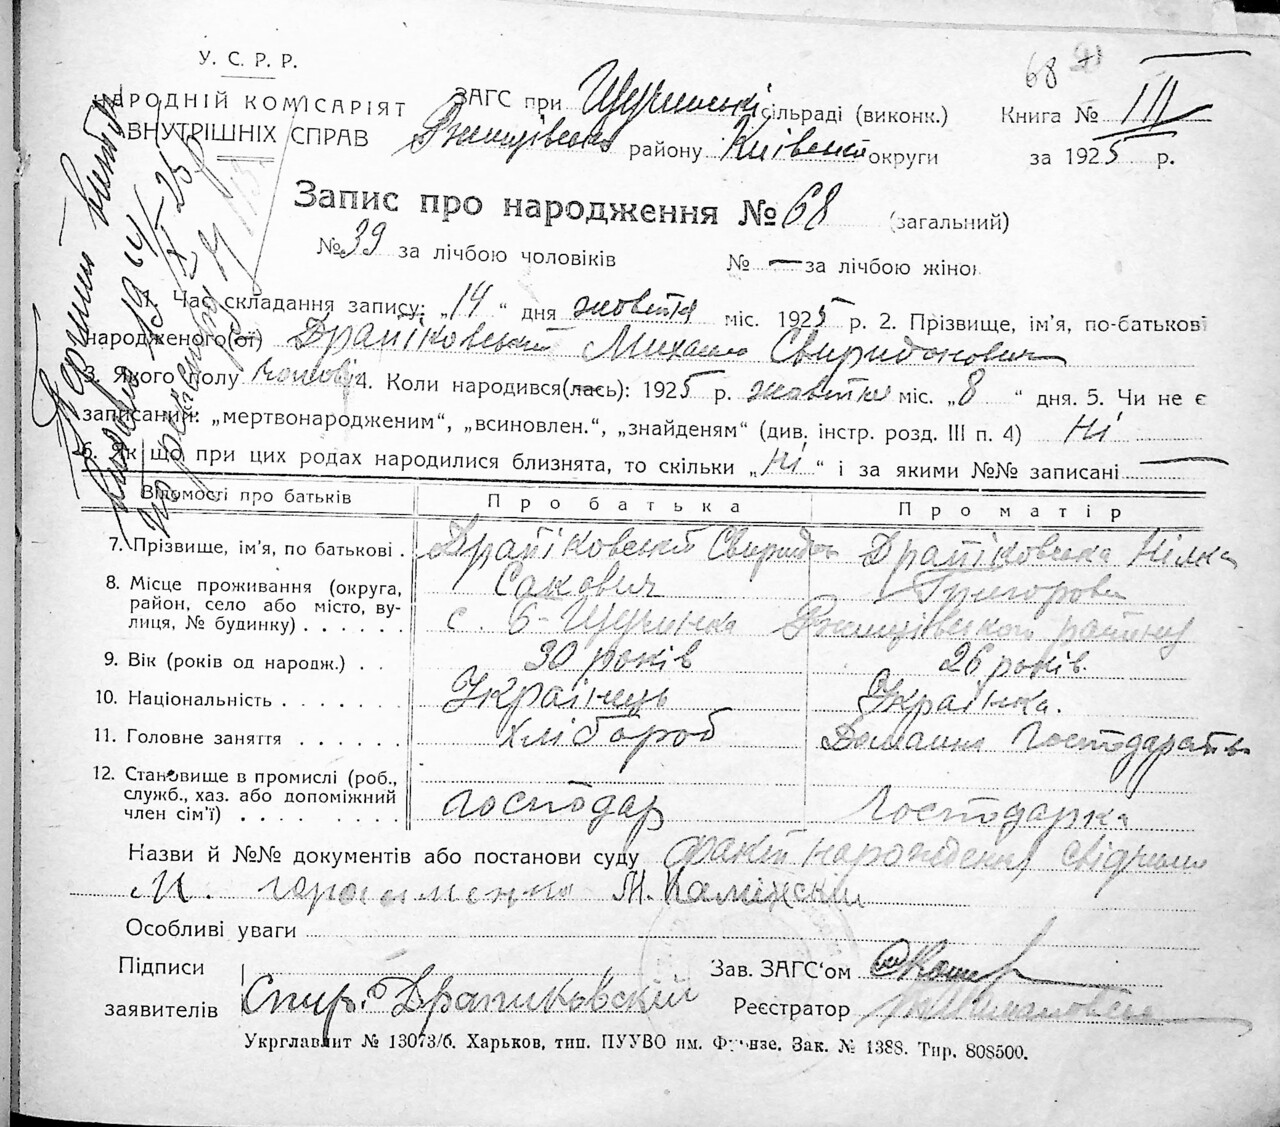 68
У. С. Р. Р.
НАРОДНІЙ КОМІСАРІЯТ
ВНУТРІШНІХ СПРАВ
ЗАГС при Щучинські сільраді (виконк.) Книга № III
Ржищівсько району Київської округи за 1925 р.
Запис про народження № 68 (загальний)
№ 39 за лічбою чоловіків № — за лічбою жінок
1. Час складання запису: „14" дня жовтня міс. 1925 р. 2. Прізвище, ім'я, по-батькові
народженого(ої) Драпіковський Михайло Свиридонович
3. Якого полу 4. Коли народився(лась): 1925 р. жовтня міс. „8" дня. 5. Чи не є
записаний: „мертвонародженим", „всиновлен.", „знайденям" (див. інстр. розд. III п. 4) Ні
6. Як що при цих родах народилися близнята, то скільки „Ні" і за якими №№ записані —
Відомості про батьків Про батька Про матір
7. Прізвище, ім'я, по батькові . Драпіковский Свиридон Драпіковська
Сакович Григорова
8. Місце проживання (округа,
район, село або місто, ву-
лиця, № будинку) . . . . . . с. Щучинка Ржищівського району
9. Вік (років од народж.) . . 30 років 26 років.
10. Національність . . . . . . . Українець Українка.
11. Головне заняття . . . . . . хлібороб Домашнє Господарство
12. Становище в промислі (роб.,
служб., хаз. або допоміжний
член сім'ї) . . . . . . . . господар Господарка
Назви й №№ документів або постанови суду факт народження свідчили
М. Герасименко М. Камінский
Особливі уваги
Підписи Зав. ЗАГС'ом
заявителів Драпиковский Реєстратор
Укрглавліт № 13073/6. Харьков, тип. ПУУВО им. Фрунзе. Зак. № 1388. Тир. 808500.